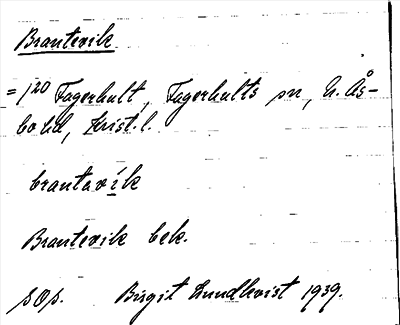 Brantevik
= 1²⁰ Fagerhult, Fagerhults sn, N. Ås-
bo hd, Krist. l.
brantavik
Brantevik bek.
sOs. Birgit Lundkvist 1939.